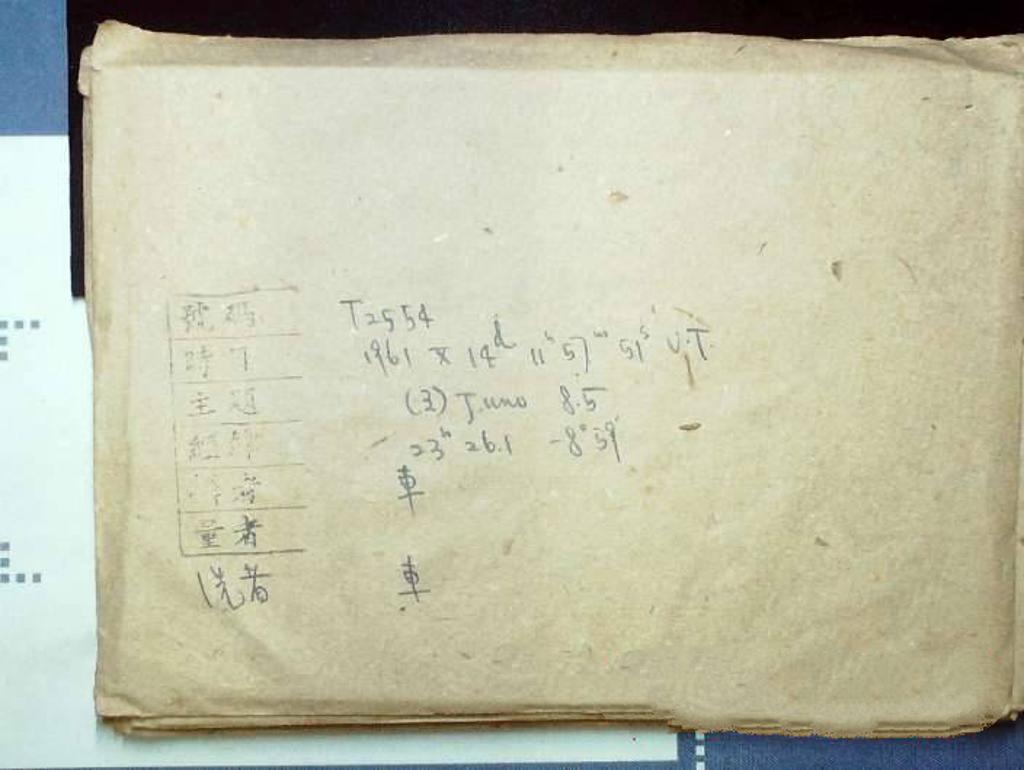 號碼 T2554
時下 1961 X 14ᵈ 11ʰ 57ᵐ 51ˢ U.T.
主題 (3) Juno 8.5
經緯 23ʰ 26.1 -8°59'
者 車
量者
洗者 車